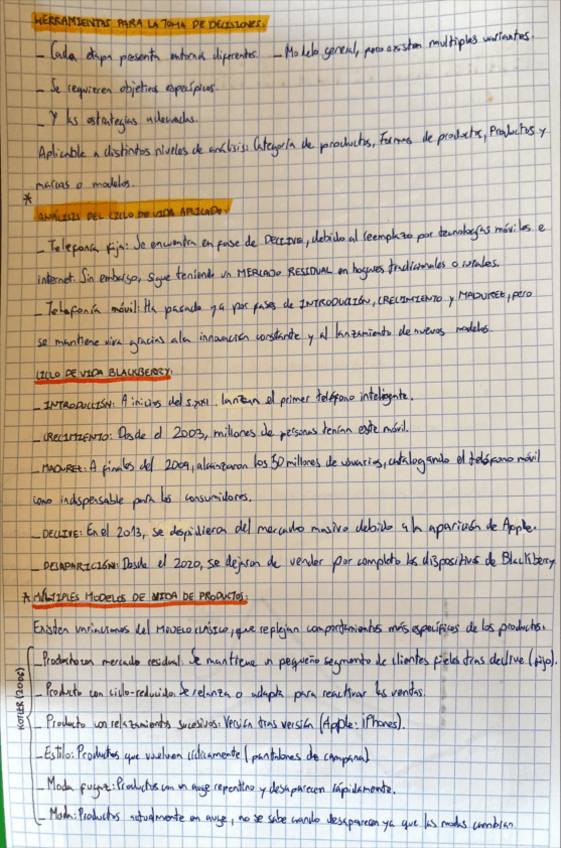 HERRAMIENTAS PARA LA TOMA DE DECISIONES:
- Cada etapa presenta entornos diferentes. - Modelo general, pero existen multiples variantes.
- Se requieren objetivos específicos.
- Y las estrategias adecuadas.
Aplicable a distintos niveles de análisis: Categoría de productos, Formas de productos, Productos y
marcas o modelos.
* ANÁLISIS DEL CICLO DE VIDA APLICADO:
- Telefonía fija: Se encuentra en fase de DECLIVE, debido al reemplazo por tecnologías móviles e
internet. Sin embargo, sigue teniendo un MERCADO RESIDUAL en hogares tradicionales o rurales.
- Telefonía móvil: Ha pasado ya por fases de INTRODUCCIÓN, CRECIMIENTO y MADUREZ, pero
se mantiene viva gracias a la innovación constante y al lanzamiento de nuevos modelos.
CICLO DE VIDA BLACKBERRY:
- INTRODUCCIÓN: A inicios del s.XXI lanzan el primer teléfono inteligente.
- CRECIMIENTO: Desde el 2003, millones de personas tenían este móvil.
- MADUREZ: A finales del 2009, alcanzaron los 50 millones de usuarios, catalogando el teléfono móvil
como indispensable para los consumidores.
- DECLIVE: En el 2013, se despidieron del mercado masivo debido a la aparición de Apple.
- DESAPARICIÓN: Desde el 2020, se dejaron de vender por completo los dispositivos de BlackBerry
* MÚLTIPLES MODELOS DE VIDA DE PRODUCTOS:
Existen variaciones del MODELO CLÁSICO, que reflejan comportamientos más específicos de los productos.
KOTLER (2008)
- Producto con mercado residual: Se mantiene un pequeño segmento de clientes fieles tras declive (fijo).
- Producto con ciclo-reducido: Se relanza o adapta para reactivar las ventas.
- Producto con relanzamientos sucesivos: Versión tras versión (Apple: iPhones).
- Estilo: Productos que vuelven cíclicamente (pantalones de campana)
- Moda fugaz: Productos con un auge repentino y desaparecen rápidamente.
- Moda: Productos actualmente en auge, no se sabe cuando desaparecen ya que las modas cambian.